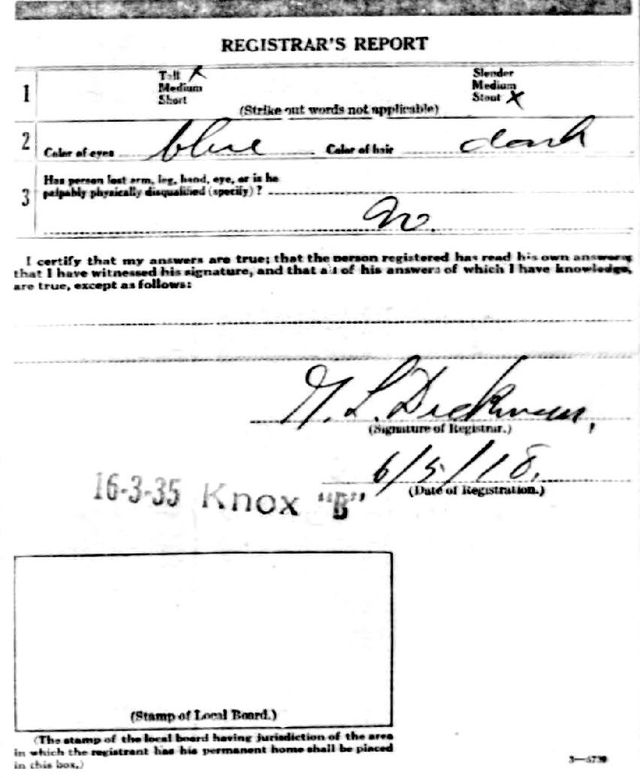 REGISTRAR'S REPORT
1 Tall X Slender
Medium Medium
Short Stout X
(Strike out words not applicable)
2 Color of eyes blue Color of hair dark
3 Has person lost arm, leg, hand, eye, or is he
palpably physically disqualified (specify)?
No.
I certify that my answers are true; that the person registered has read his own answers;
that I have witnessed his signature, and that all of his answers of which I have knowledge,
are true, except as follows:
L. Dickman,
(Signature of Registrar.)
6/5/18.
(Date of Registration.)
16-3-35 Knox "B"
(Stamp of Local Board.)
(The stamp of the local board having jurisdiction of the area
in which the registrant has his permanent home shall be placed
in this box.)
3—5739